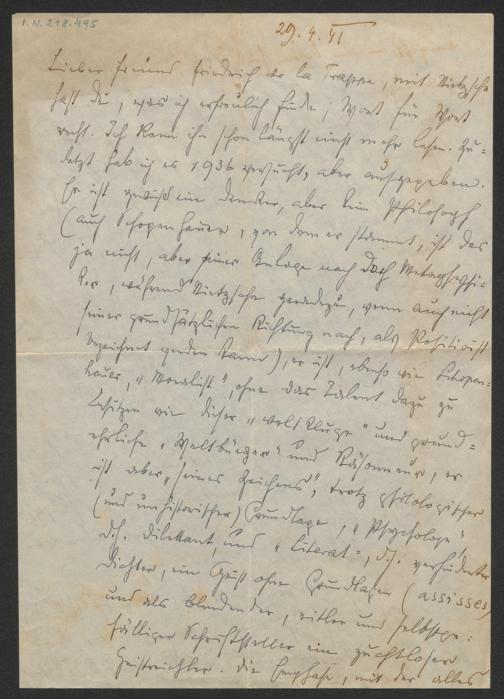 I.N. 218.495
29.4.41
Lieber Freund Friedrich de la Trappe, mit Nietzsche
hast du, was ich erfreulich finde, Wort für Wort
recht. Ich kann ihn schon längst nicht mehr lesen. Zu-
letzt hab ich es 1936 versucht, aber aufgegeben.
Er ist gewiß ein Denker, aber kein Philosoph
(auch Schopenhauer, von dem er stammt, ist das
ja nicht, aber seiner Anlage nach doch Metaphysi-
ker, während Nietzsche geradezu, wenn auch nicht
seiner grundsätzlichen Richtung nach, als Positivist
bezeichnet werden kann), er ist, ebenso wie Schopen-
hauer, "Moralist", ohne das Talent dazu zu
besitzen wie dieser "weltkluge" und grund-
ehrliche "Weltbürger" und Räsonneur, er
ist aber "seines Zeichens", trotz philologischer
(und unhistorischer) Grundlage, "Psychologe",
d.h. Dilettant, und "Literat", d.h. verhinderter
Dichter, ein Geist ohne Grundlagen (assises)
und als blendender, eitler und selbstge-
fälliger Schriftsteller ein zuchtloser
Geistreichler. Die Emphase, mit der alles